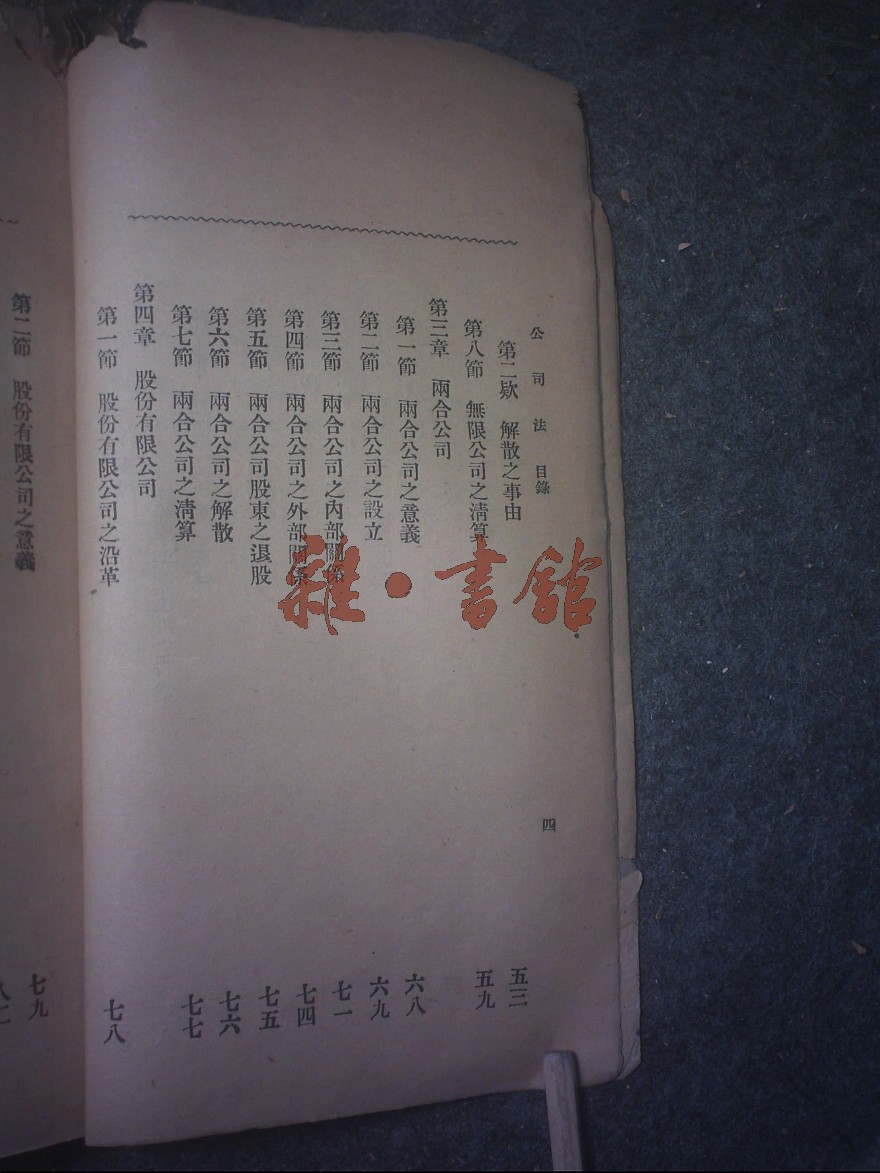 公司法 目錄
四
第二欵 解散之事由 五三
第八節 無限公司之淸算 五九
第三章 兩合公司
第一節 兩合公司之意義 六八
第二節 兩合公司之設立 六九
第三節 兩合公司之內部關係 七一
第四節 兩合公司之外部關係 七四
第五節 兩合公司股東之退股 七五
第六節 兩合公司之解散 七六
第七節 兩合公司之淸算 七七
第四章 股份有限公司
第一節 股份有限公司之沿革 七八
第二節 股份有限公司之意義 七九
雜·書館